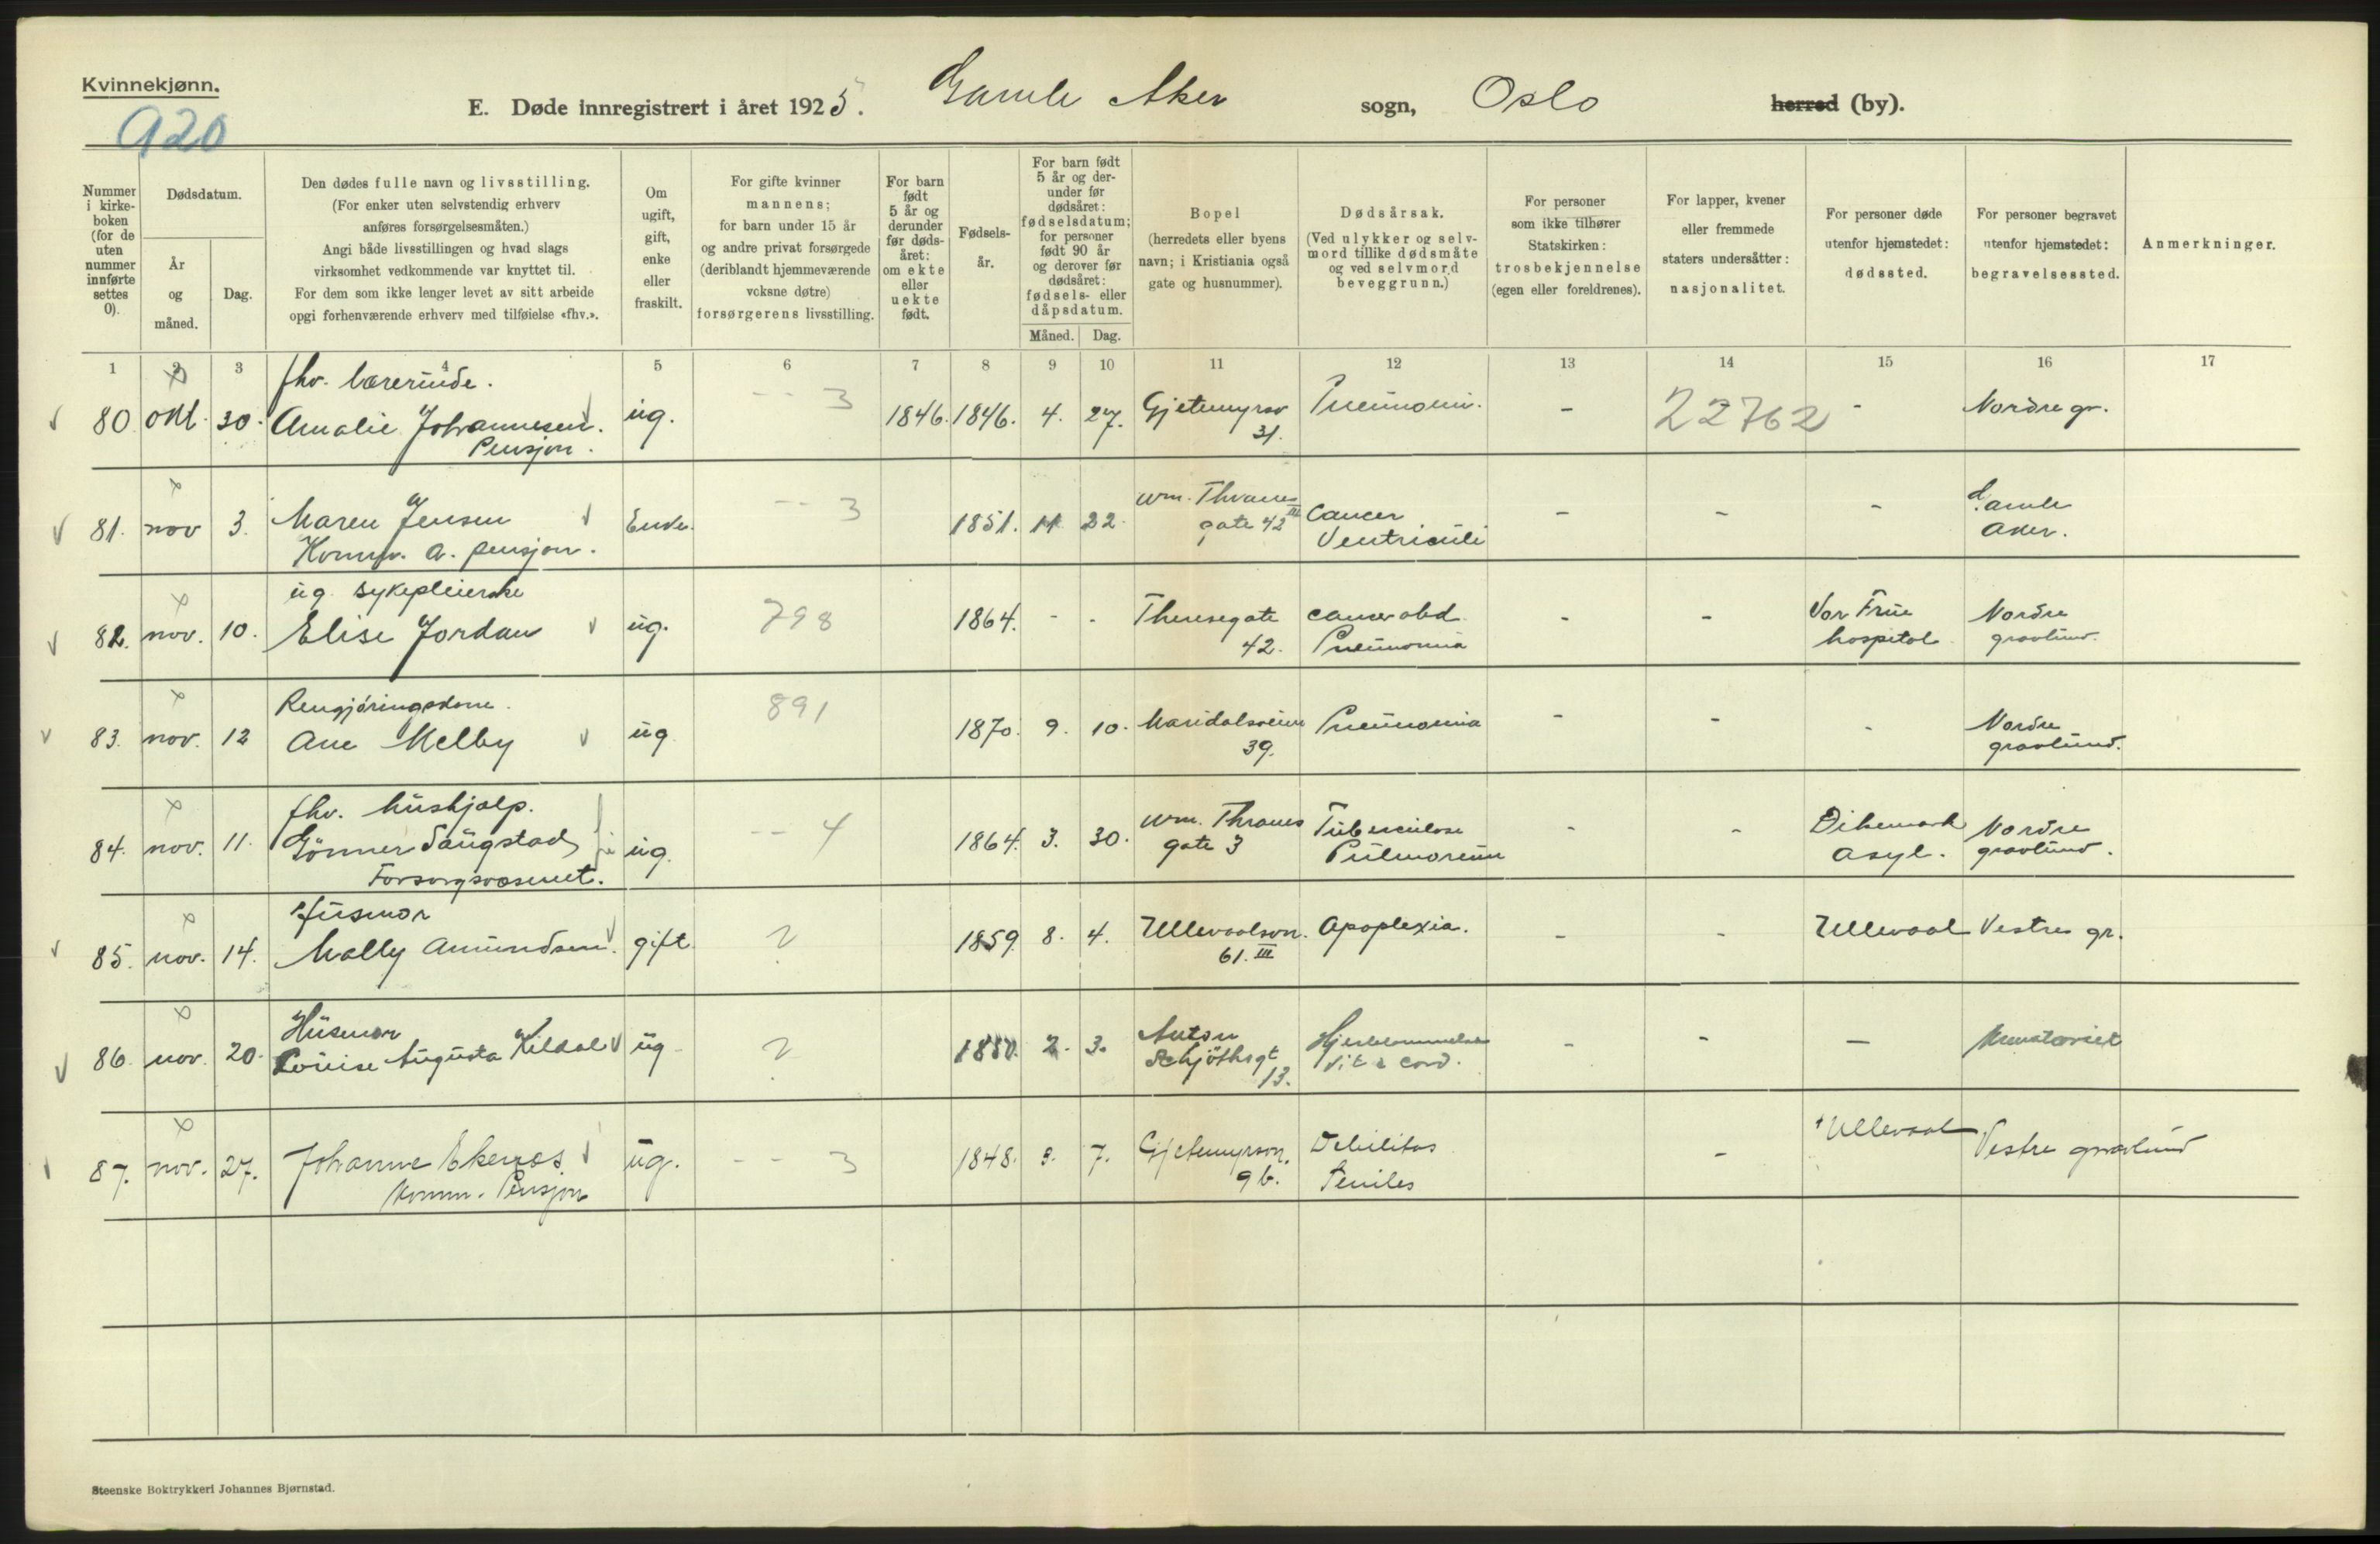 Kvinnekjønn.
920
E. Døde innregistrert i året 1925. Gamle Aker sogn, Oslo herred (by).
Nummer i kirkeboken (for de uten nummer innførte settes 0).
Dødsdatum.
År og måned.
Dag.
Den dødes fulle navn og livsstilling.
(For enker uten selvstendig erhverv
anføres forsørgelsesmåten.)
Angi både livsstillingen og hvad slags
virksomhet vedkommende var knyttet til.
For dem som ikke lenger levet av sitt arbeide
opgi forhenværende erhverv med tilføielse «fhv.».
Om ugift, gift, enke eller fraskilt.
For gifte kvinner
mannens;
for barn under 15 år
og andre privat forsørgede
(deriblandt hjemmeværende
voksne døtre)
forsørgerens livsstilling.
For barn født 5 år og derunder før dødsåret: om ekte eller uekte født.
Fødselsår.
For barn født 5 år og derunder før dødsåret: fødselsdatum; for personer født 90 år og derover før dødsåret: fødsels- eller dåpsdatum.
Måned. Dag.
Bopel
(herredets eller byens
navn; i Kristiania også
gate og husnummer).
Dødsårsak.
(Ved ulykker og selvmord tillike dødsmåte og ved selvmord beveggrunn.)
For personer
som ikke tilhører
Statskirken:
trosbekjennelse
(egen eller foreldrenes).
For lapper, kvener
eller fremmede
staters undersåtter:
nasjonalitet.
For personer døde
utenfor hjemstedet:
dødssted.
For personer begravet
utenfor hjemstedet:
begravelsessted.
Anmerkninger.
1 2 3 4 5 6 7 8 9 10 11 12 13 14 15 16 17
fhv. lærerinde.
80 okt. 30. Amalie Johannesen. ug. -- 3 1846. 1846. 4. 27. Gjetemyrsv 31. Pneumoni. - 22762 - Nordre gr.
Pensjon.
81. nov 3. Maren Jensen Enke. -- 3 1851. 11 22. Wm. Thranes gate 42 III Cancer Ventriculi - - - Gamle Aker.
Komm. a. pensjon.
ug. sykepleierske
82. nov. 10. Elise Jordan ug. 798 1864. - - Theresegate 42. cancer abd. Pneumonia - - Vor Frue hospital Nordre gravlund.
Rengjøringskone.
83. nov. 12 Ane Melby ug 891 1870. 9. 10. Maridalsveien 39. Pneumonia - - - Nordre gravlund.
fhv. hushjælp.
84. nov. 11. Gønner Saugstad ug. -- 4 1864. 3. 30. Wm. Thranes gate 3 Tuberculose Pulmonum - - Dikemark Asyl. Nordre gravlund.
Forsorgsvæsenet.
Husmor
85. nov. 14. Mally Amundsen. gift ? 1859. 8. 4. Ullevoalsvn. 61. III Apoplexia. - - Ullevaal Vestre gr.
Husmor
86. nov. 20. Louise Augusta Kildal ug ? 1880. 2. 3. Anton Schjøthsgt 13. Vit. cord. - - -
87. nov. 27. Johanne Ekernæs ug. -- 3 1848. 9. 7. Gjetemyrsvn. 9 b. Debilitas Seniles - Ullevaal Vestre gravlund
Komm. Pensjon
Steenske Boktrykkeri Johannes Bjørnstad.